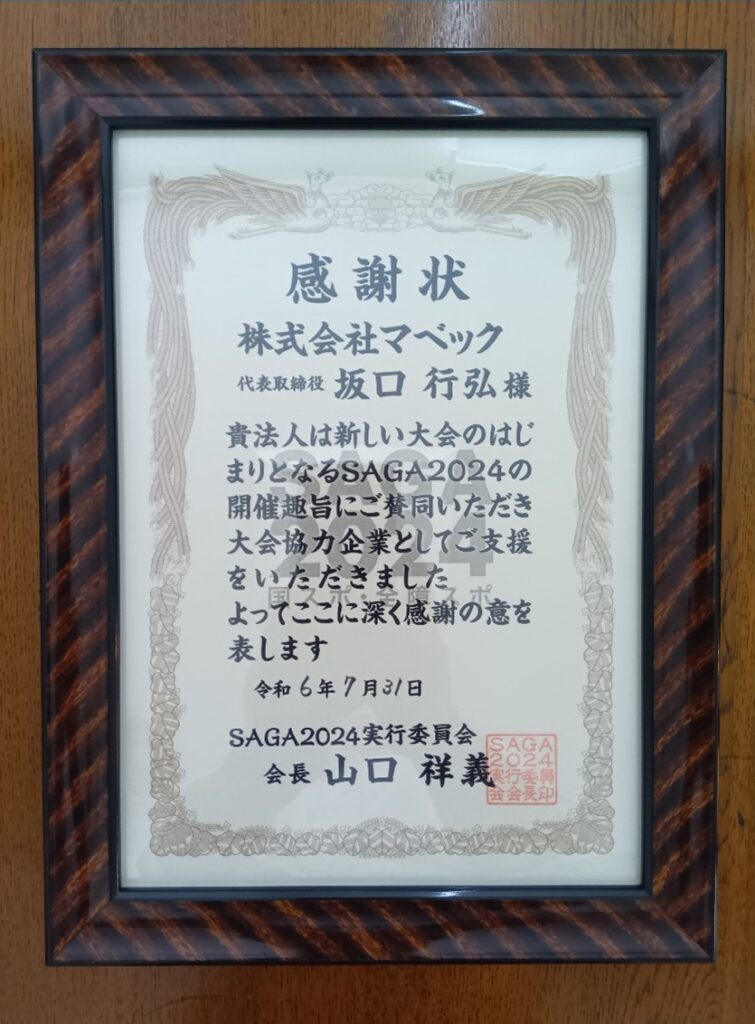 感謝状
株式会社マベック
代表取締役 坂口 行弘 様
貴法人は新しい大会のはじ
まりとなるSAGA2024の
開催趣旨にご賛同いただき
大会協力企業としてご支援
をいただきました
よってここに深く感謝の意を
表します
令和6年7月31日
SAGA2024実行委員会
会長 山口 祥義
SAGA
2024
実行委員
会会長印
SAGA
2024
国スポ・全障スポ